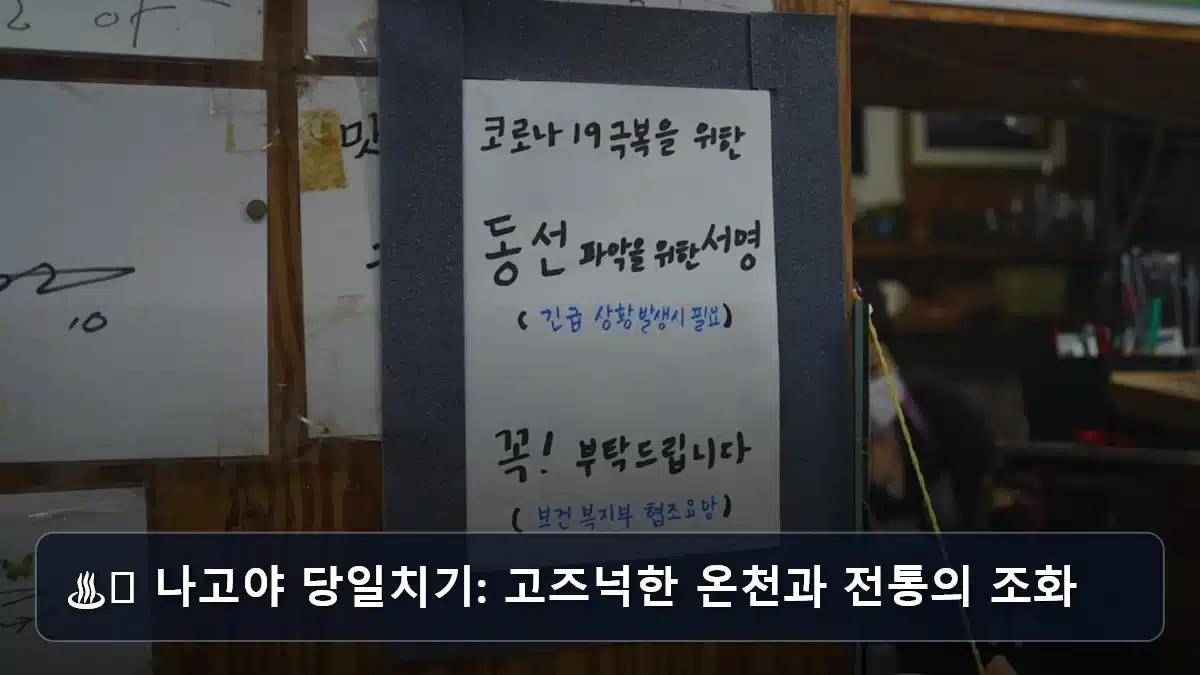 맛
10
코로나 19 극복을 위한
동선 파악을 위한 서명
( 긴급 상황 발생시 필요)
꼭! 부탁드립니다
( 보건복지부 협조요망)
♨️ 나고야 당일치기: 고즈넉한 온천과 전통의 조화